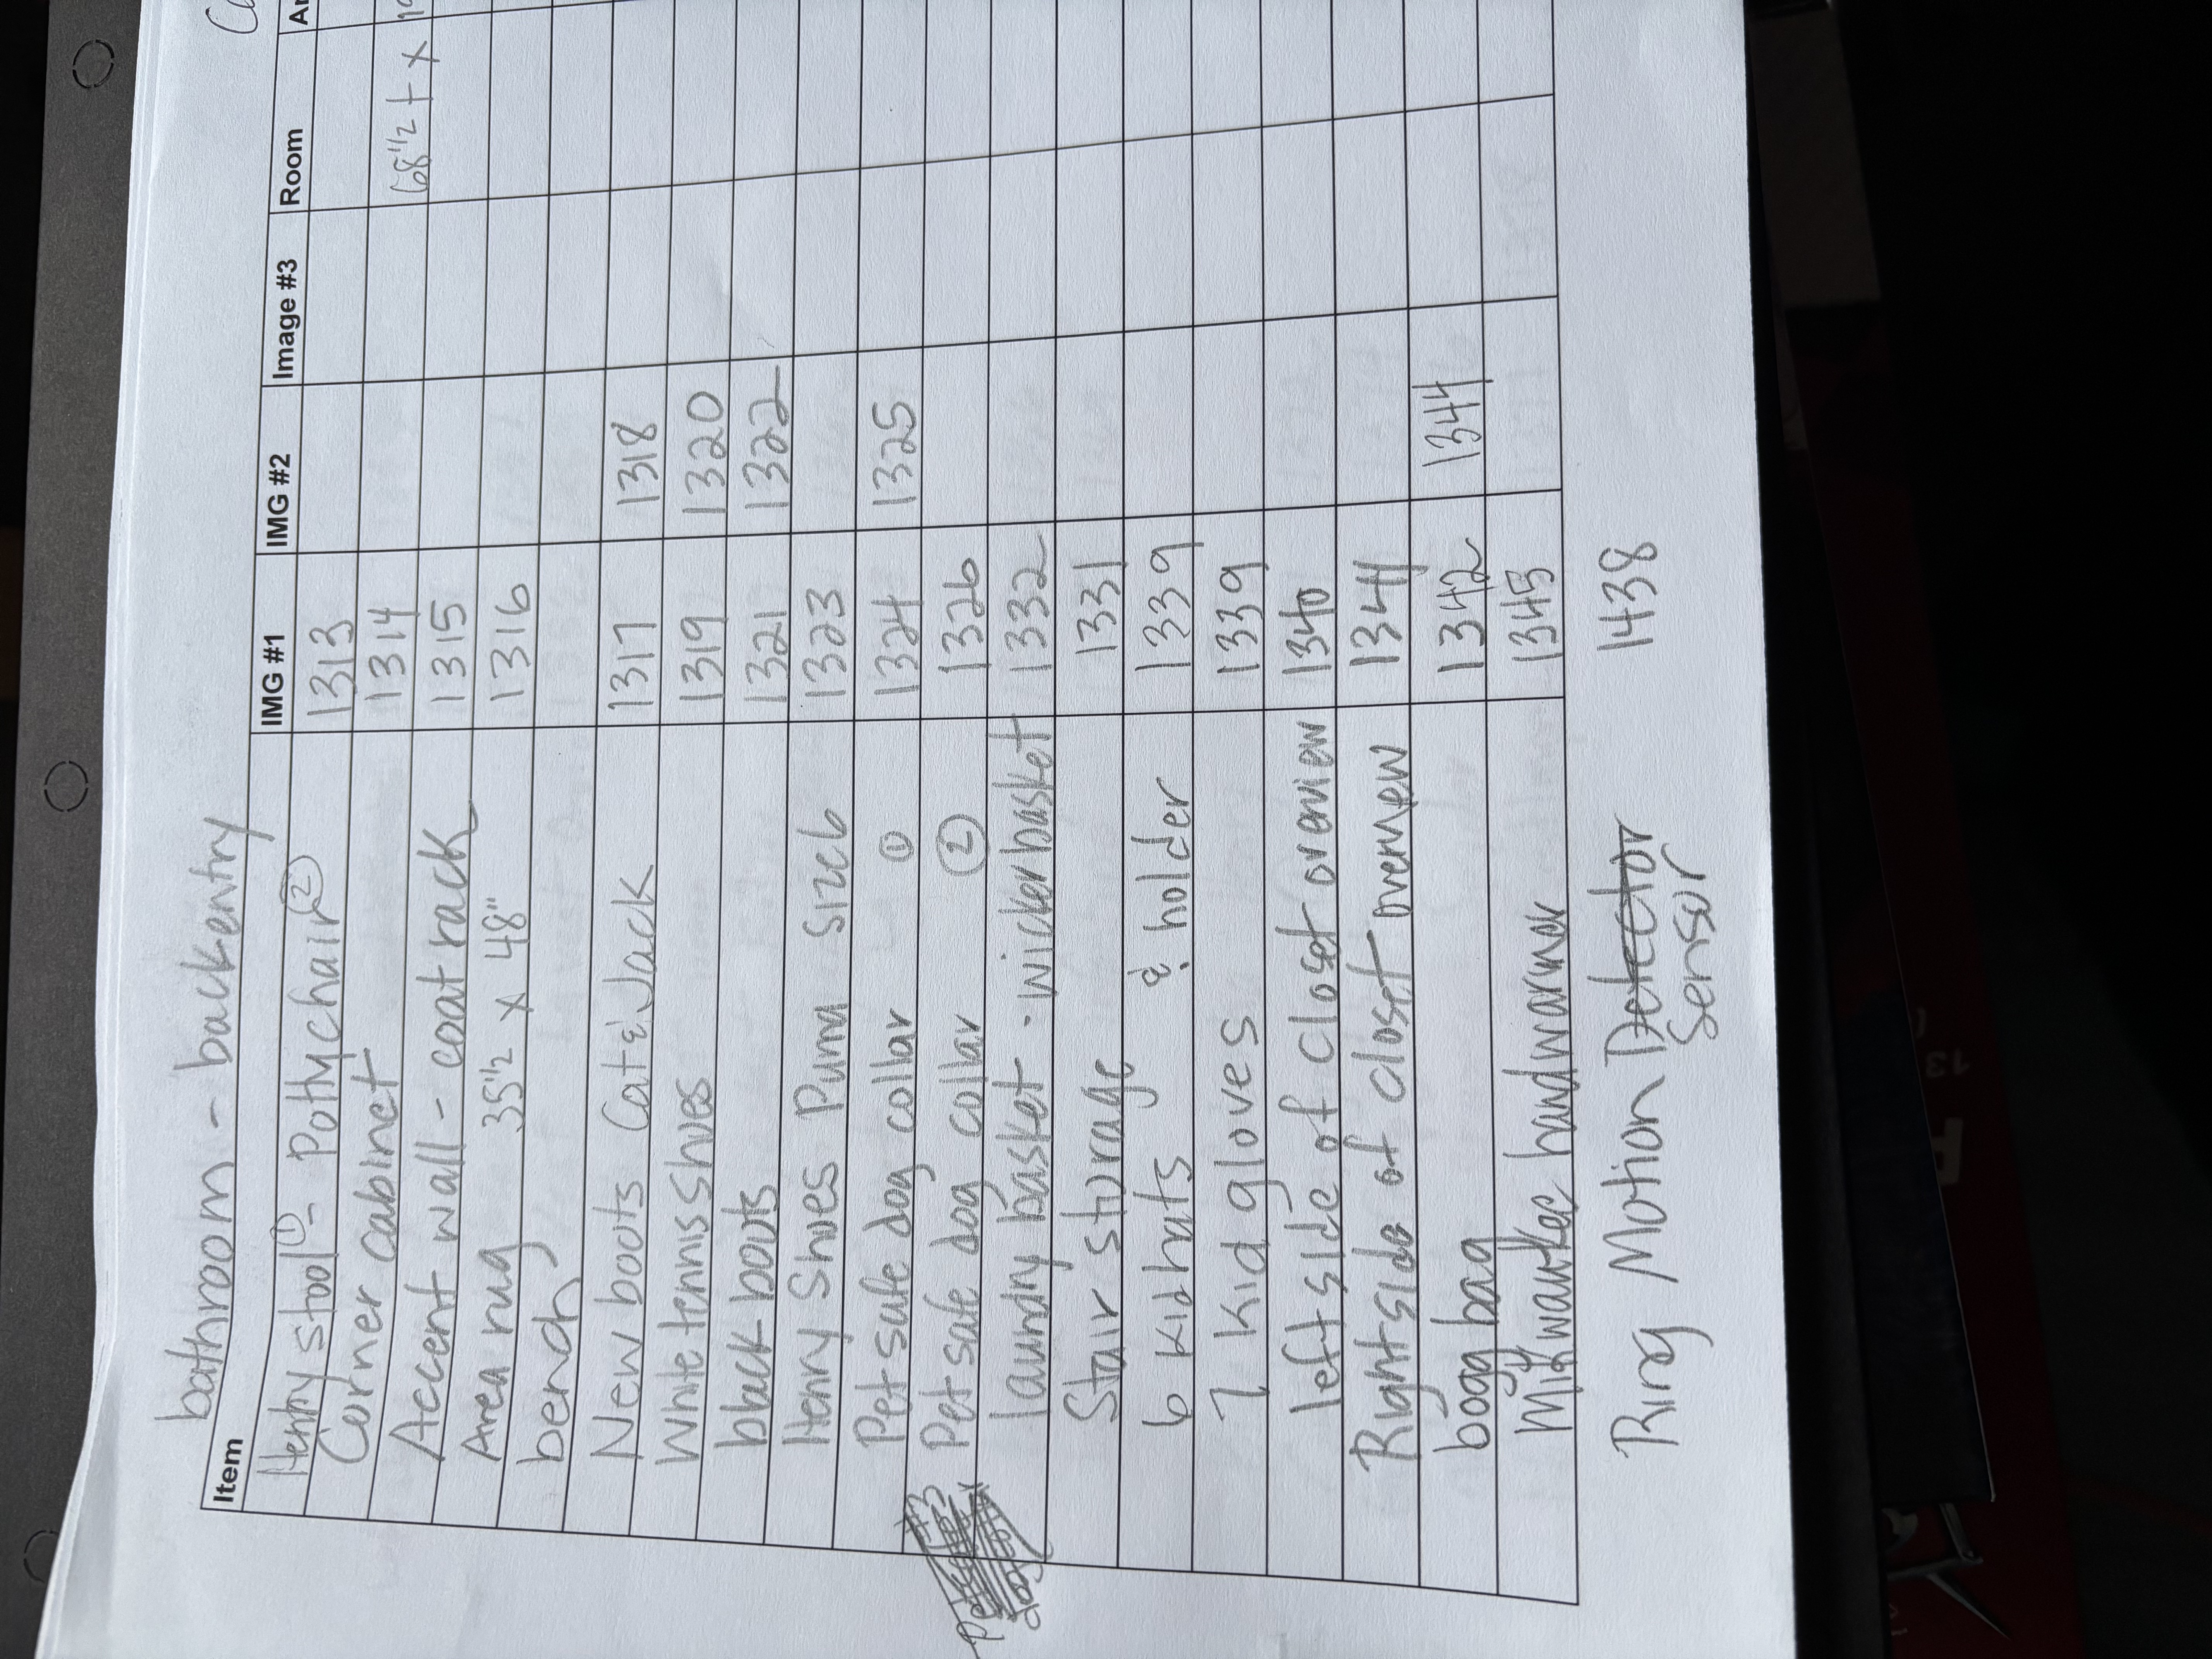 bathroom - backentry
Item IMG #1 IMG #2 Image #3 Room
Henry stool ① - Potty chair ② 1313
Corner cabinet 1314 68 1/2 + x
Accent wall - coat rack 1315
Area rug 35 1/2 x 48" 1316
bench
New boots Cat & Jack 1317 1318
White tennis shoes 1319 1320
black boots 1321 1322
Henry Shoes Puma Size 6 1323
Pet safe dog collar ① 1324 1325
Pet safe dog collar ② 1326
laundry basket - wicker basket 1332
Stair storage 1331
6 kid hats & holder 1339
7 kid gloves 1339
left side of closet overview 1340
Right side of closet overview 1341
bogg bag 1342 1344
Milwaukee handwarmer 1345
Ring Motion Detector 1438
Sensor